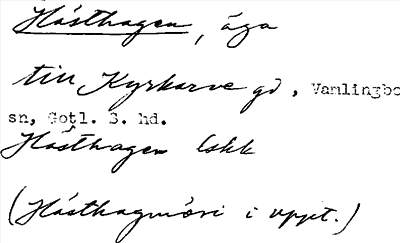 Hästhagen, äga
till Kyrkarve gd, Vamlingbo
sn, Gotl. S. hd.
Hästhagen lskk
(Hästhagmöri i uppt.)